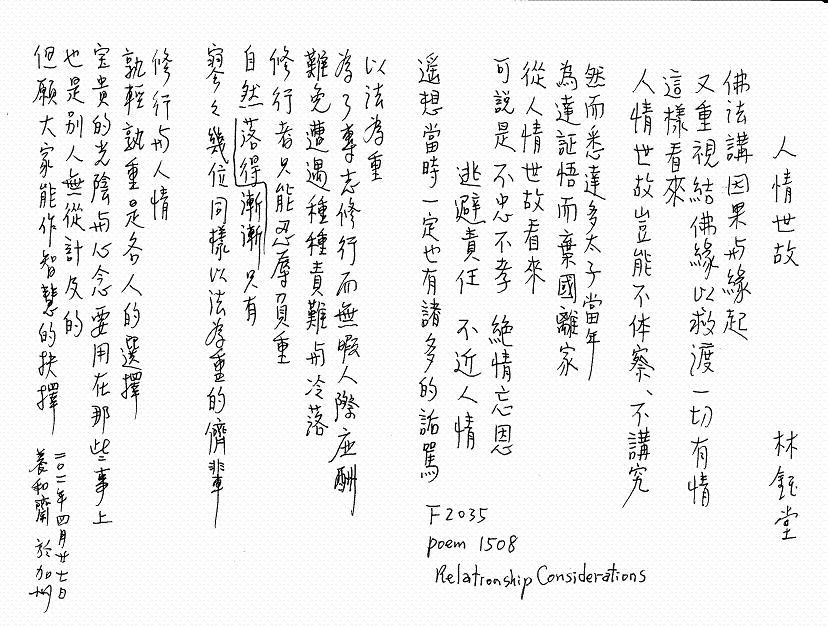 人情世故 林鈺堂
佛法講因果与緣起
又重視結佛緣以救渡一切有情
這樣看來
人情世故豈能不体察、不講究
然而悉達多太子當年
為達証悟而棄國離家
從人情世故看來
可說是 不忠不孝 絕情忘恩
逃避責任 不近人情
遥想當時一定也有諸多的詬罵
以法為重
為了專志修行而無暇人際应酬
難免遭遇種種責難与冷落
修行者只能忍辱負重
自然落得漸漸只有
寥々幾位同樣以法為重的儕輩
修行与人情
孰輕孰重是各人的選擇
宝貴的光陰与心念要用在那些事上
也是別人無從計及的
但願大家能作智慧的抉擇
二〇二一年四月廿七日
養和齋 於加州
F2035
poem 1508
Relationship Considerations